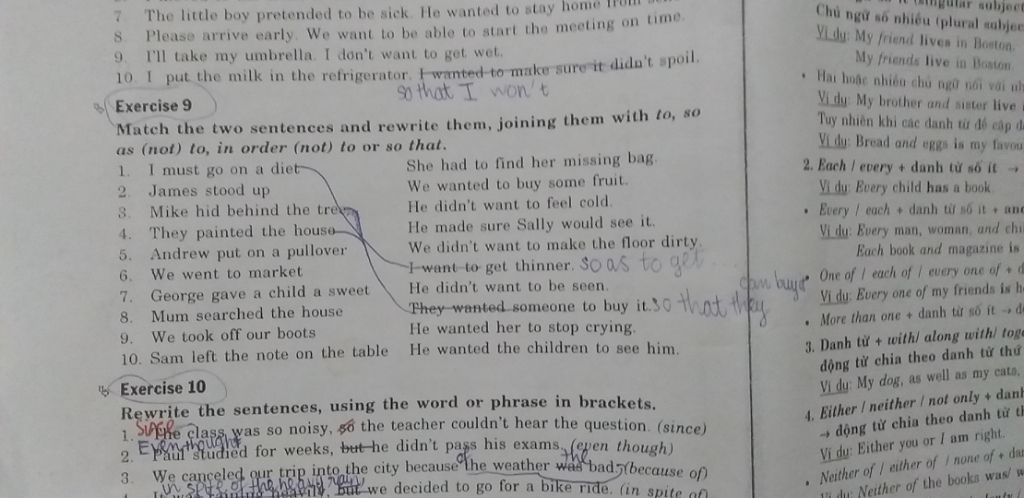 7 The little boy pretended to be sick. He wanted to stay home from
8. Please arrive early. We want to be able to start the meeting on time.
9. I'll take my umbrella. I don't want to get wet.
10. I put the milk in the refrigerator. I wanted to make sure it didn't spoil.
so that I won't
Exercise 9
Match the two sentences and rewrite them, joining them with to, so
as (not) to, in order (not) to or so that.
1. I must go on a diet She had to find her missing bag.
2. James stood up We wanted to buy some fruit.
3. Mike hid behind the tree He didn't want to feel cold.
4. They painted the house He made sure Sally would see it.
5. Andrew put on a pullover We didn't want to make the floor dirty.
6. We went to market I want to get thinner. so as to get ...
7. George gave a child a sweet He didn't want to be seen.
can buy
8. Mum searched the house They wanted someone to buy it. so that they
9. We took off our boots He wanted her to stop crying.
10. Sam left the note on the table He wanted the children to see him.
Exercise 10
Rewrite the sentences, using the word or phrase in brackets.
Since
1. The class was so noisy, so the teacher couldn't hear the question. (since)
Even though
2. Paul studied for weeks, but he didn't pass his exams. (even though)
of the
3. We canceled our trip into the city because the weather was bad. (because of)
In spite of the heavy rain
but we decided to go for a bike ride. (in spite of)
(singular subject
Chủ ngữ số nhiều (plural subjec
Ví dụ: My friend lives in Boston.
My friends live in Boston.
• Hai hoặc nhiều chủ ngữ nối với nh
Ví dụ: My brother and sister live
Tuy nhiên khi các danh từ đề cập đ
Ví dụ: Bread and eggs is my favou
2. Each / every + danh từ số ít →
Ví dụ: Every child has a book.
• Every / each + danh từ số ít + and
Ví dụ: Every man, woman, and chi
Each book and magazine is
• One of / each of / every one of + d
Ví dụ: Every one of my friends is h
• More than one + danh từ số ít → đ
3. Danh từ + with/ along with/ toge
động từ chia theo danh từ thứ
Ví dụ: My dog, as well as my cats,
4. Either / neither / not only + danh
→ động từ chia theo danh từ t
Ví dụ: Either you or I am right.
• Neither of / either of / none of + da
Ví dụ: Neither of the books was/ w